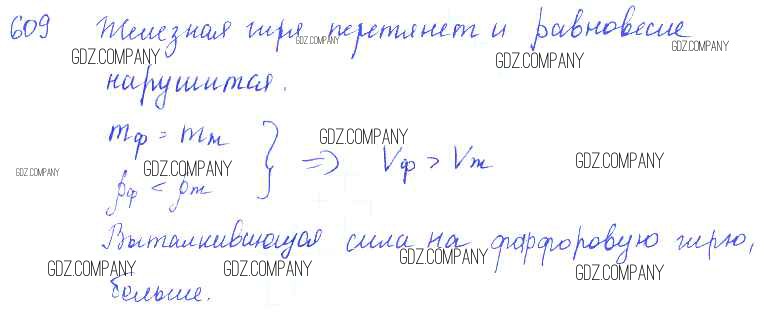 609 Железная гиря перетянет и равновесие
нарушится.
mф = mж
ρф < ρж } => Vф > Vж
Выталкивающая сила на фарфоровую гирю,
больше.
GDZ.COMPANY
GDZ.COMPANY
GDZ.COMPANY
GDZ.COMPANY
GDZ.COMPANY
GDZ.COMPANY
GDZ.COMPANY
GDZ.COMPANY
GDZ.COMPANY
GDZ.COMPANY
GDZ.COMPANY
GDZ.COMPANY